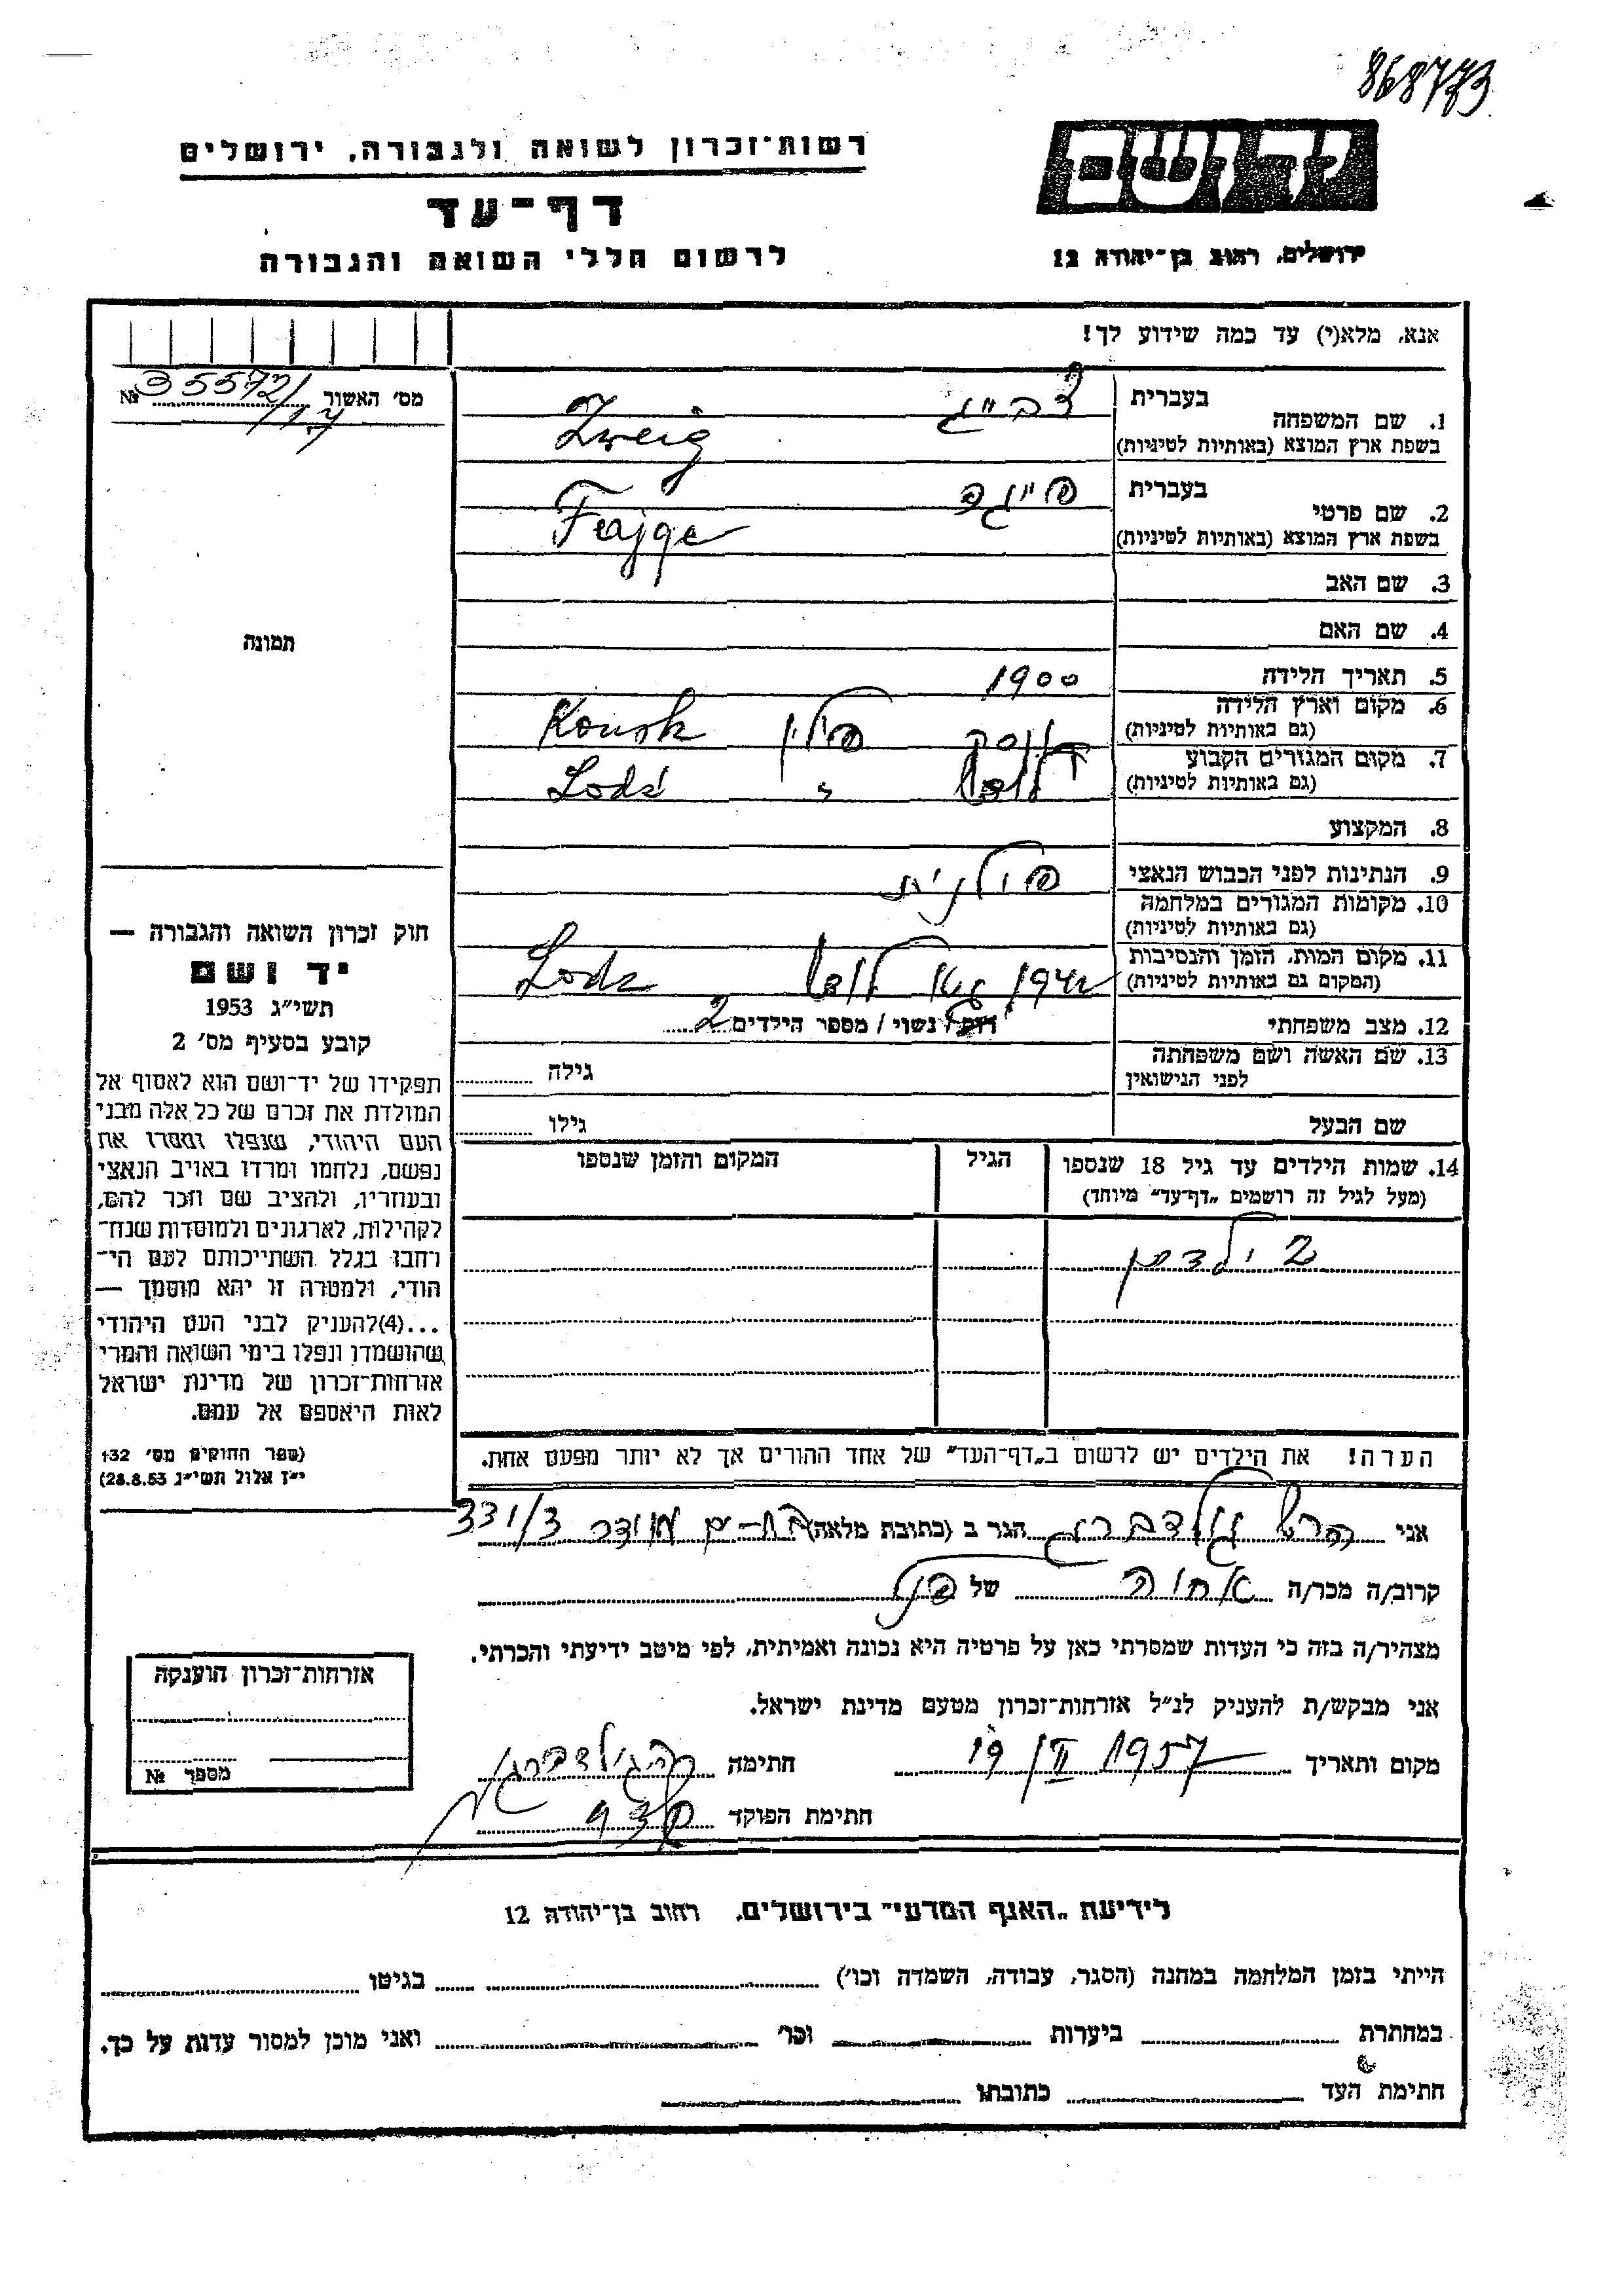 868773
רשות־זכרון לשואה ולגבורה, ירושלים
יד ושם
דף־עד
לרשום חללי השואה והגבורה
ירושלים, רחוב בן־יהודה 12
אנא, מלא(י) עד כמה שידוע לך!
מס' האשור 35572/ №
1. שם המשפחה בעברית צבייג
בשפת ארץ המוצא (באותיות לטיניות) Zweig
2. שם פרטי בעברית פייגה
בשפת ארץ המוצא (באותיות לטיניות) Fajge
3. שם האב
4. שם האם
תמונה
5. תאריך הלידה 1900
6. מקום וארץ הלידה פולין Konsk
(גם באותיות לטיניות)
7. מקום המגורים הקבוע לודז' " Lodź
(גם באותיות לטיניות)
8. המקצוע
9. הנתינות לפני הכבוש הנאצי פולנית
10. מקומות המגורים במלחמה
(גם באותיות לטיניות)
11. מקום המות, הזמן והנסיבות גטו לודז' Lodz
(המקום גם באותיות לטיניות)
12. מצב משפחתי רוק / נשוי / מספר הילדים 2
13. שם האשה ושם משפחתה גילה
לפני הנישואין
שם הבעל גילו
14. שמות הילדים עד גיל 18 שנספו הגיל המקום והזמן שנספו
(מעל לגיל זה רושמים "דף־עד" מיוחד)
2 ילדים
הערה! את הילדים יש לרשום ב"דף־העד" של אחד ההורים אך לא יותר מפעם אחת.
חוק זכרון השואה והגבורה —
יד ושם
תשי"ג 1953
קובע בסעיף מס' 2
תפקידו של יד־ושם הוא לאסוף אל
המולדת את זכרם של כל אלה מבני
העם היהודי, שנפלו ומסרו את
נפשם, נלחמו ומרדו באויב הנאצי
ובעוזריו, ולהציב שם וזכר להם,
לקהילות, לארגונים ולמוסדות שנח־
רחבו בגלל השתייכותם לעם הי־
הודי, ולמטרה זו יהא מוסמך —
...(4) להעניק לבני העם היהודי
שהושמדו ונפלו בימי השואה והמרי
אזרחות־זכרון של מדינת ישראל
לאות היאספם אל עמם.
(ספר החוקים מס' 132
י"ז אלול תשי"ג 28.8.53)
אני גולדברג הגר ב (כתובת מלאה) 331/3
קרוב/ה מכר/ה אחות של
מצהיר/ה בזה כי העדות שמסרתי כאן על פרטיה היא נכונה ואמיתית, לפי מיטב ידיעתי והכרתי.
אני מבקש/ת להעניק לנ"ל אזרחות־זכרון מטעם מדינת ישראל.
מקום ותאריך 19/II 1957 חתימה ה גולדברג
חתימת הפוקד
אזרחות־זכרון הוענקה
מספר №
לידיעת "האגף המדעי" בירושלים, רחוב בן־יהודה 12
הייתי בזמן המלחמה במחנה (הסגר, עבודה, השמדה וכו') בגיטו
במחתרת ביערות וכו' ואני מוכן למסור עדות על כך.
חתימת העד כתובתו